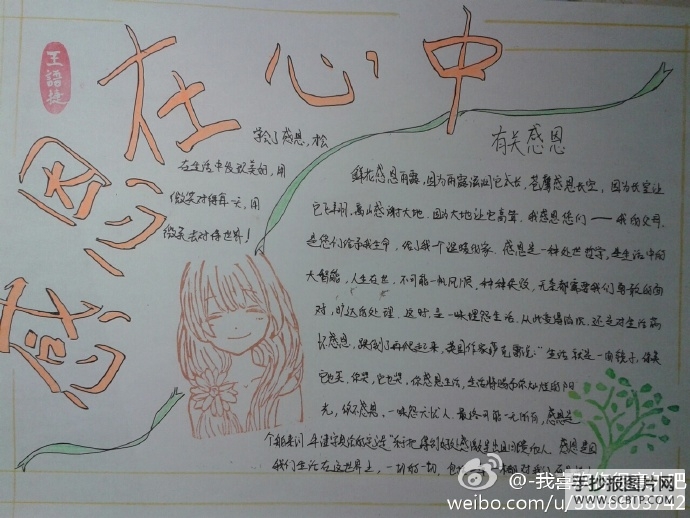 感恩在心中
王語捷
学会了感恩,松
在生活中发现美的,用
微笑对待每一天,用
微笑去对待世界!
有关感恩
鲜花感恩雨露,因为雨露滋润它成长,苍鹰感恩长空,因为长空让
它飞翔,高山感谢大地,因为大地让它高耸,我感恩您们——我的父母.
是您们给予我生命,给了我一个温暖的家.感恩是一种处世哲学,是生活中的
大智能,人生在世,不可能一帆风顺,种种失败,无奈都需要我们勇敢的面
对,旷达的处理.这时,是一味埋怨生活,从此变得消沉,还是对生活满
怀感恩,跌倒了再爬起来,英国作家萨克雷说:"生活就是一面镜子,你笑
它也笑,你哭,它也哭,你感恩生活,生活将赐予你灿烂的阳
光,你不感恩,一味怨天尤人 最终可能一无所有,感恩是
感恩是因
我们生活在这世界上,一切的一切,包
@-我喜
weibo.com/u/
手抄报图片网
WWW.SCBTP.COM